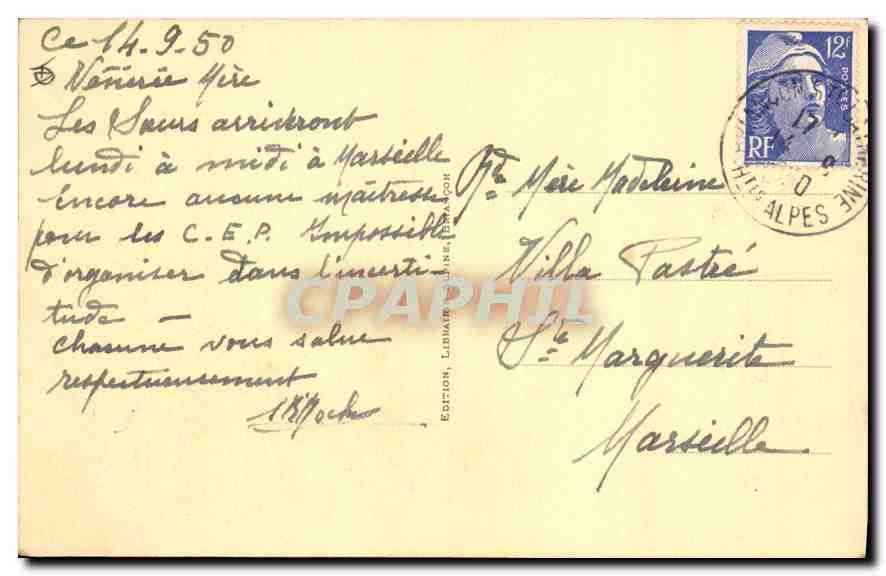 Ce 14-9-50
Vénérée Mère
Les Sœurs arriveront
lundi à midi à Marseille
Encore aucune maîtresse
pour les C.E.P. Impossible
d'organiser dans l'incerti-
tude -
chacune vous salue
respectueusement
Rde Mère Madeleine
Villa Pastré
Ste Marguerite
Marseille
EDITION, LIBRAIRIE ALPINE, BRIANÇON
12F
POSTES
RF
BRIANÇON STE CATHERINE
17
9
0
HTES ALPES
CPAPHIL